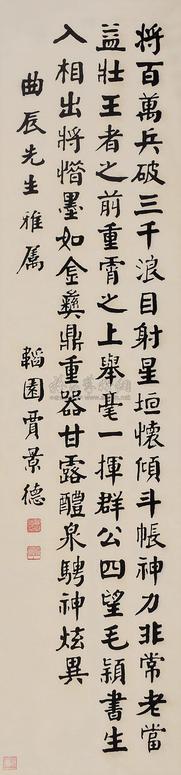 将百萬兵破三千浪目射星垣懷傾斗帳神力非常老當
益壯王者之前重霄之上舉毫一揮群公四望毛穎書生
入相出將惜墨如金彝鼎重器甘露醴泉騁神炫異
曲辰先生雅屬
韜園賈景德